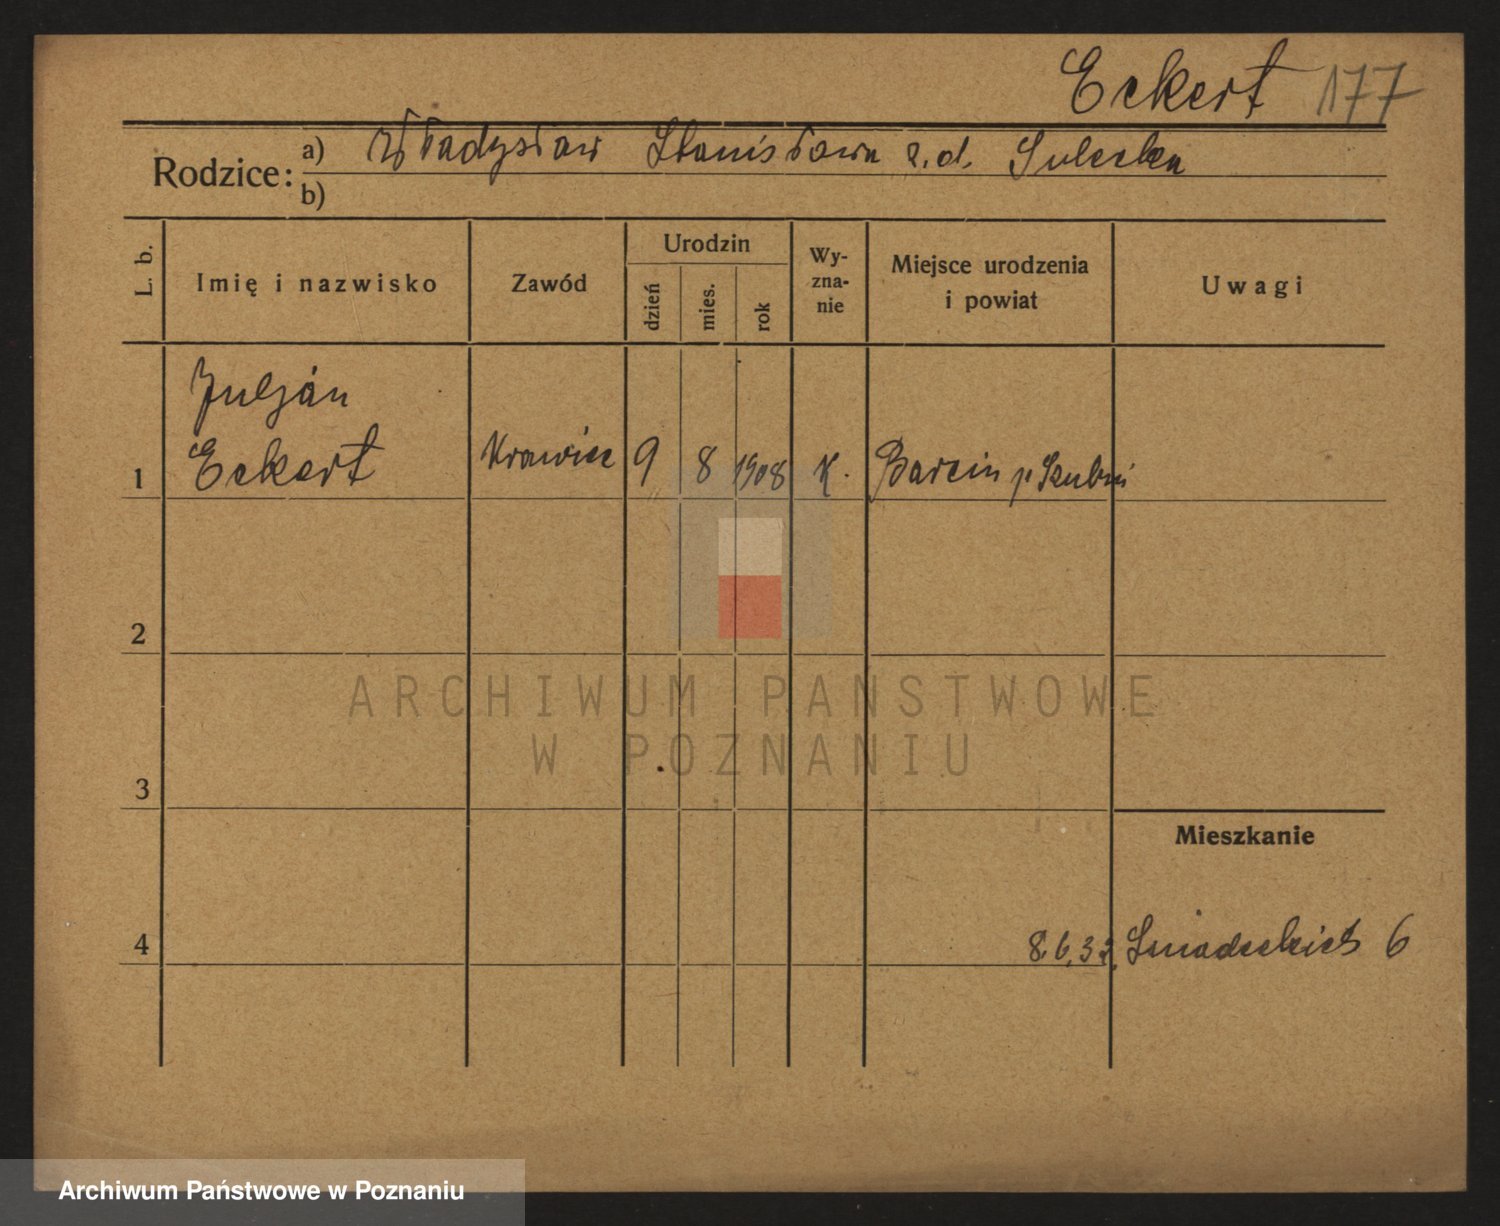 Eckert 177
Rodzice: a) Władysław Stanisława z.d. Sulecka
b)
L. b.
Imię i nazwisko
Zawód
Urodzin
dzień
mies.
rok
Wy-
zna-
nie
Miejsce urodzenia
i powiat
Uwagi
Juljan
1 Eckert Krawiec 9 8 1908 K. Barcin p. Szubin
2
3
Mieszkanie
4 8.6.32. Sniadeckich 6
ARCHIWUM PAŃSTWOWE
W POZNANIU
Archiwum Państwowe w Poznaniu